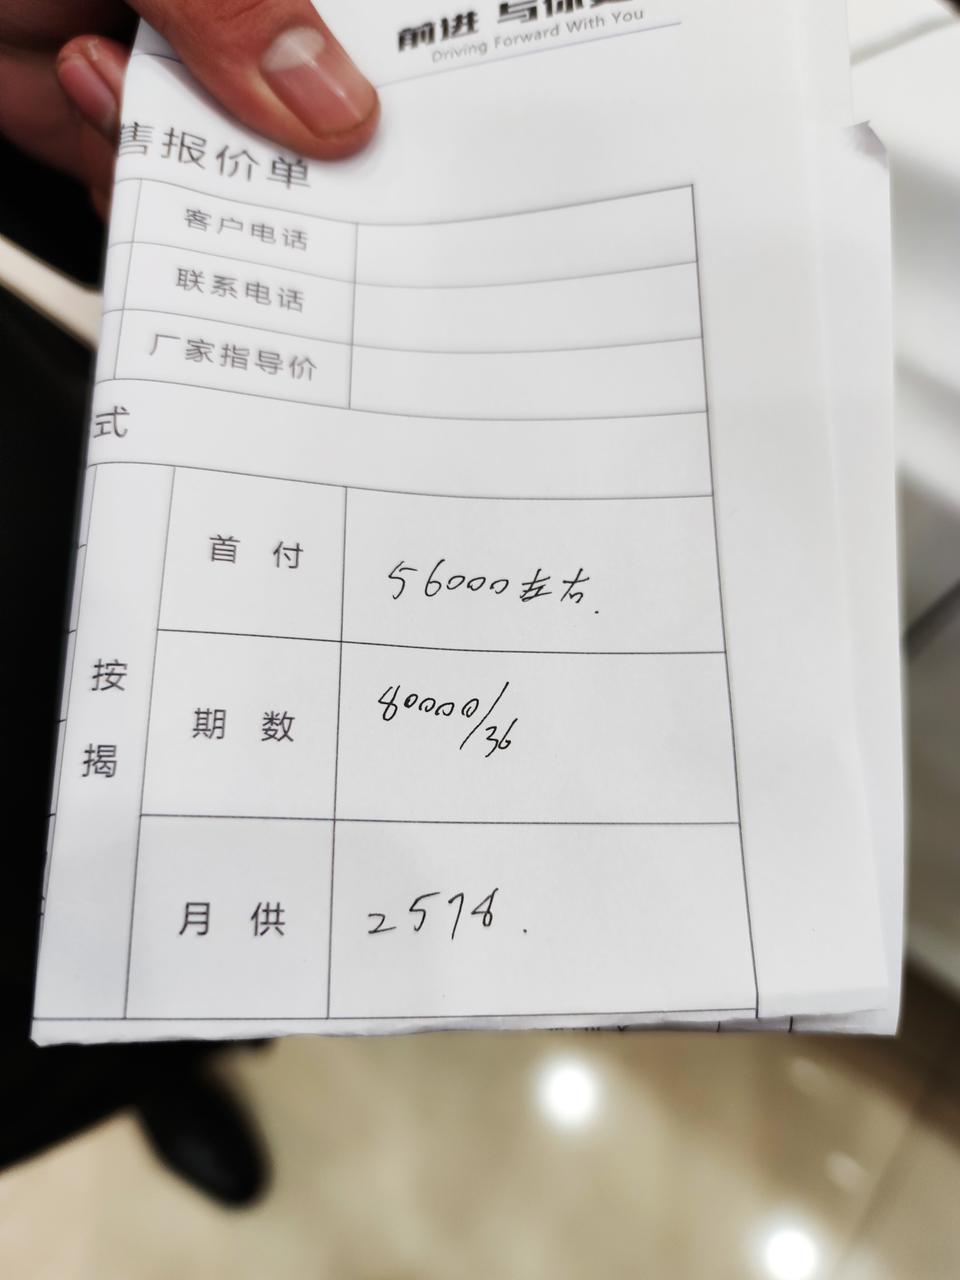 前进 与你
Driving Forward With You
售报价单
客户电话
联系电话
厂家指导价
式
按揭
首付 56000左右.
期数 80000/36
月供 2578.